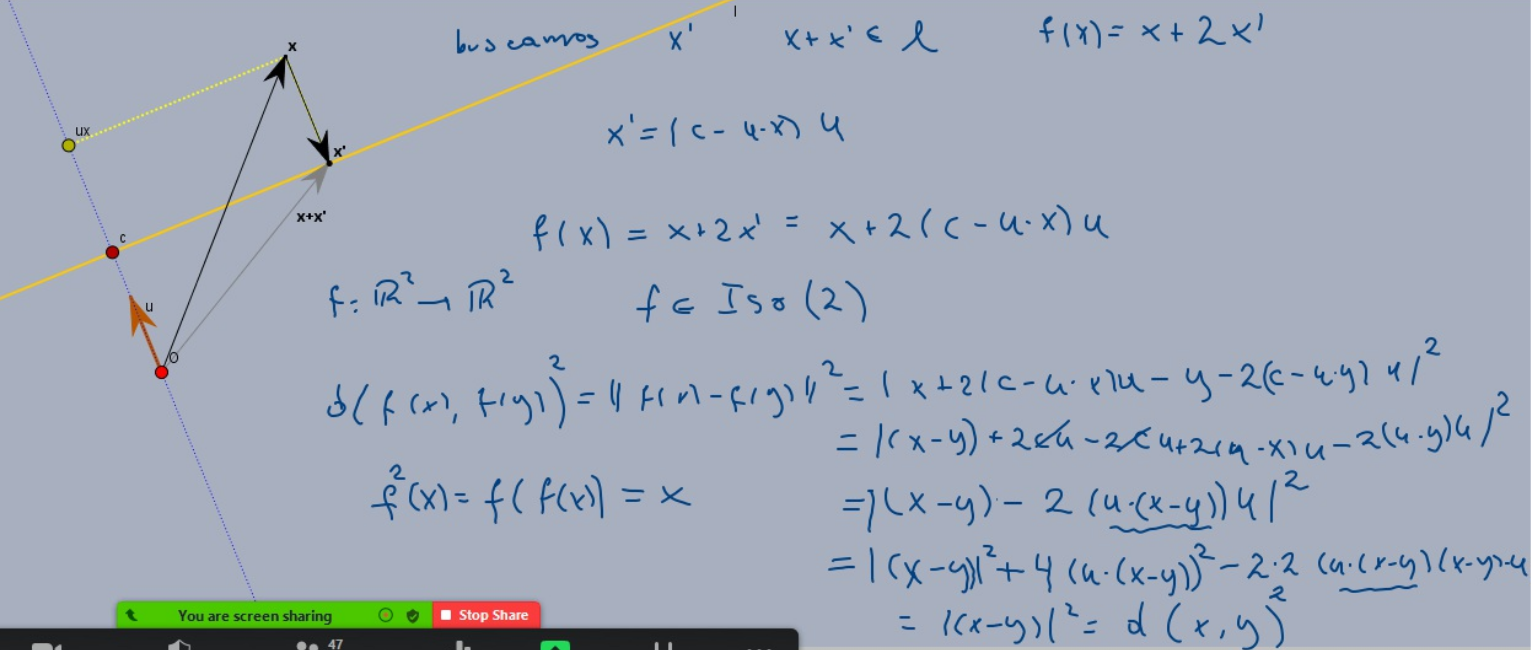 l
x
buscamos x' x+x' ∈ l f(x)= x+2x'
ux
x'= (c- u·x) u
x'
x+x'
f(x) = x+2x' = x+2(c-u·x)u
c
f: ℝ² → ℝ² f ∈ Iso(2)
u
O
d(f(x), f(y))² = ‖f(x)-f(y)‖² = |x+2(c-u·x)u - y-2(c-u·y)u|²
= |(x-y)+2cu-2cu+2(u·x)u-2(u·y)u|²
f²(x)= f(f(x)) = x
=|(x-y)- 2 (u·(x-y))u|²
= |(x-y)|²+4(u·(x-y))²-2·2 (u·(x-y))(x-y)·u
= |(x-y)|²= d(x,y)²
You are screen sharing Stop Share
47